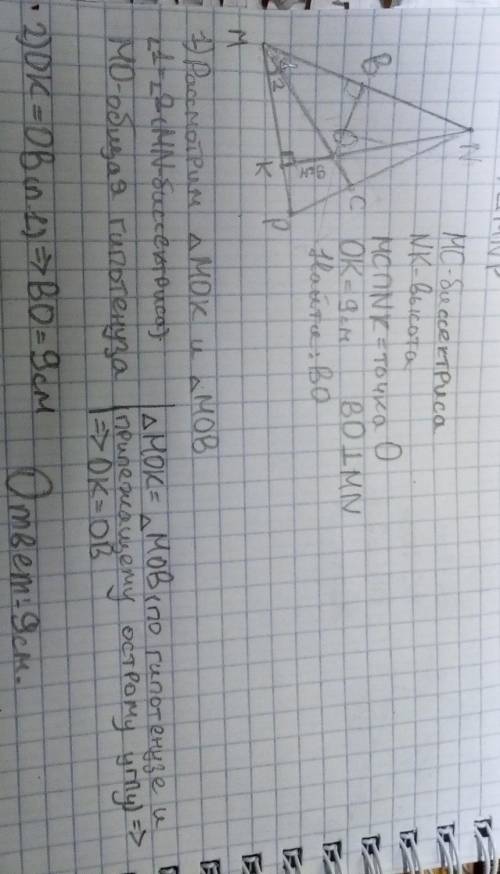 MC-биссектриса
NK-высота
MC∩NK=точка O
OK=9см BO⊥MN
Найти: BO
N
B
O
C
M
1
2
K
P
1) Рассмотрим △MOK и △MOB
∠1=∠2 (MN-биссектриса)
MO-общая гипотенуза
△MOK=△MOB (по гипотенузе и
прилежащему острому углу) =>
=> OK=OB
2) OK=OB (п.1) => BO=9см
Ответ: 9см.